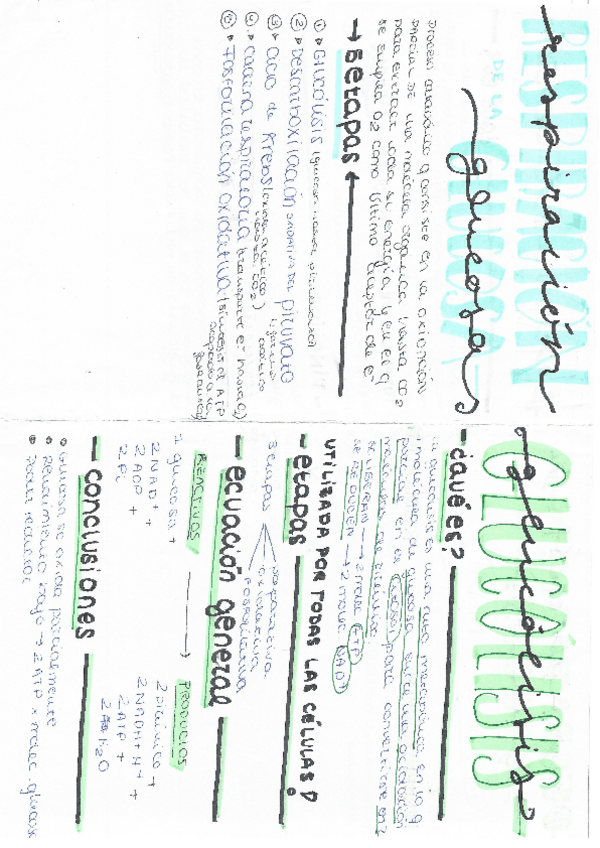 RESPIRACIÓN
respiración
DE LA
GLUCOSA
glucosa
proceso catabólico q consiste en la oxidación
parcial de una molécula orgánica hasta CO2
para extraer toda su energía y en el q
se emplea O2 como último aceptor de e-
→ 5 etapas ←
① ▸ GLUCÓLISIS (glucosa hasta piruvato)
② ▸ Descarboxilación oxidativa del piruvato
③ ▸ Ciclo de Krebs
hasta CO2)
④ ▸ Cadena respiratoria (transporte e- hasta O2)
⑤ ▸ Fosforilación oxidativa (síntesis de ATP
GLUCÓLISIS
glucólisis
- ¿qué es?
la glucólisis es una ruta metabólica en la q
1 molécula de glucosa sufre una oxidación
parcial en el citosol para convertirse en 2
moléculas de pirúvico
SE LIBERAN → 2 moléc ATP
SE REDUCEN → 2 moléc NAD+
UTILIZADA POR TODAS LAS CÉLULAS
- etapas
3 etapas
preparativa
oxidativa
fosforilativa
- ecuación general
REACTIVOS → PRODUCTOS
1 glucosa + 2 pirúvico +
2 NAD+ + 2 NADH + H+ +
2 ADP + 2 ATP +
2 Pi 2 H2O
- conclusiones
Glucosa se oxida parcialmente
Rendimiento bajo → 2 ATP x moléc. glucosa